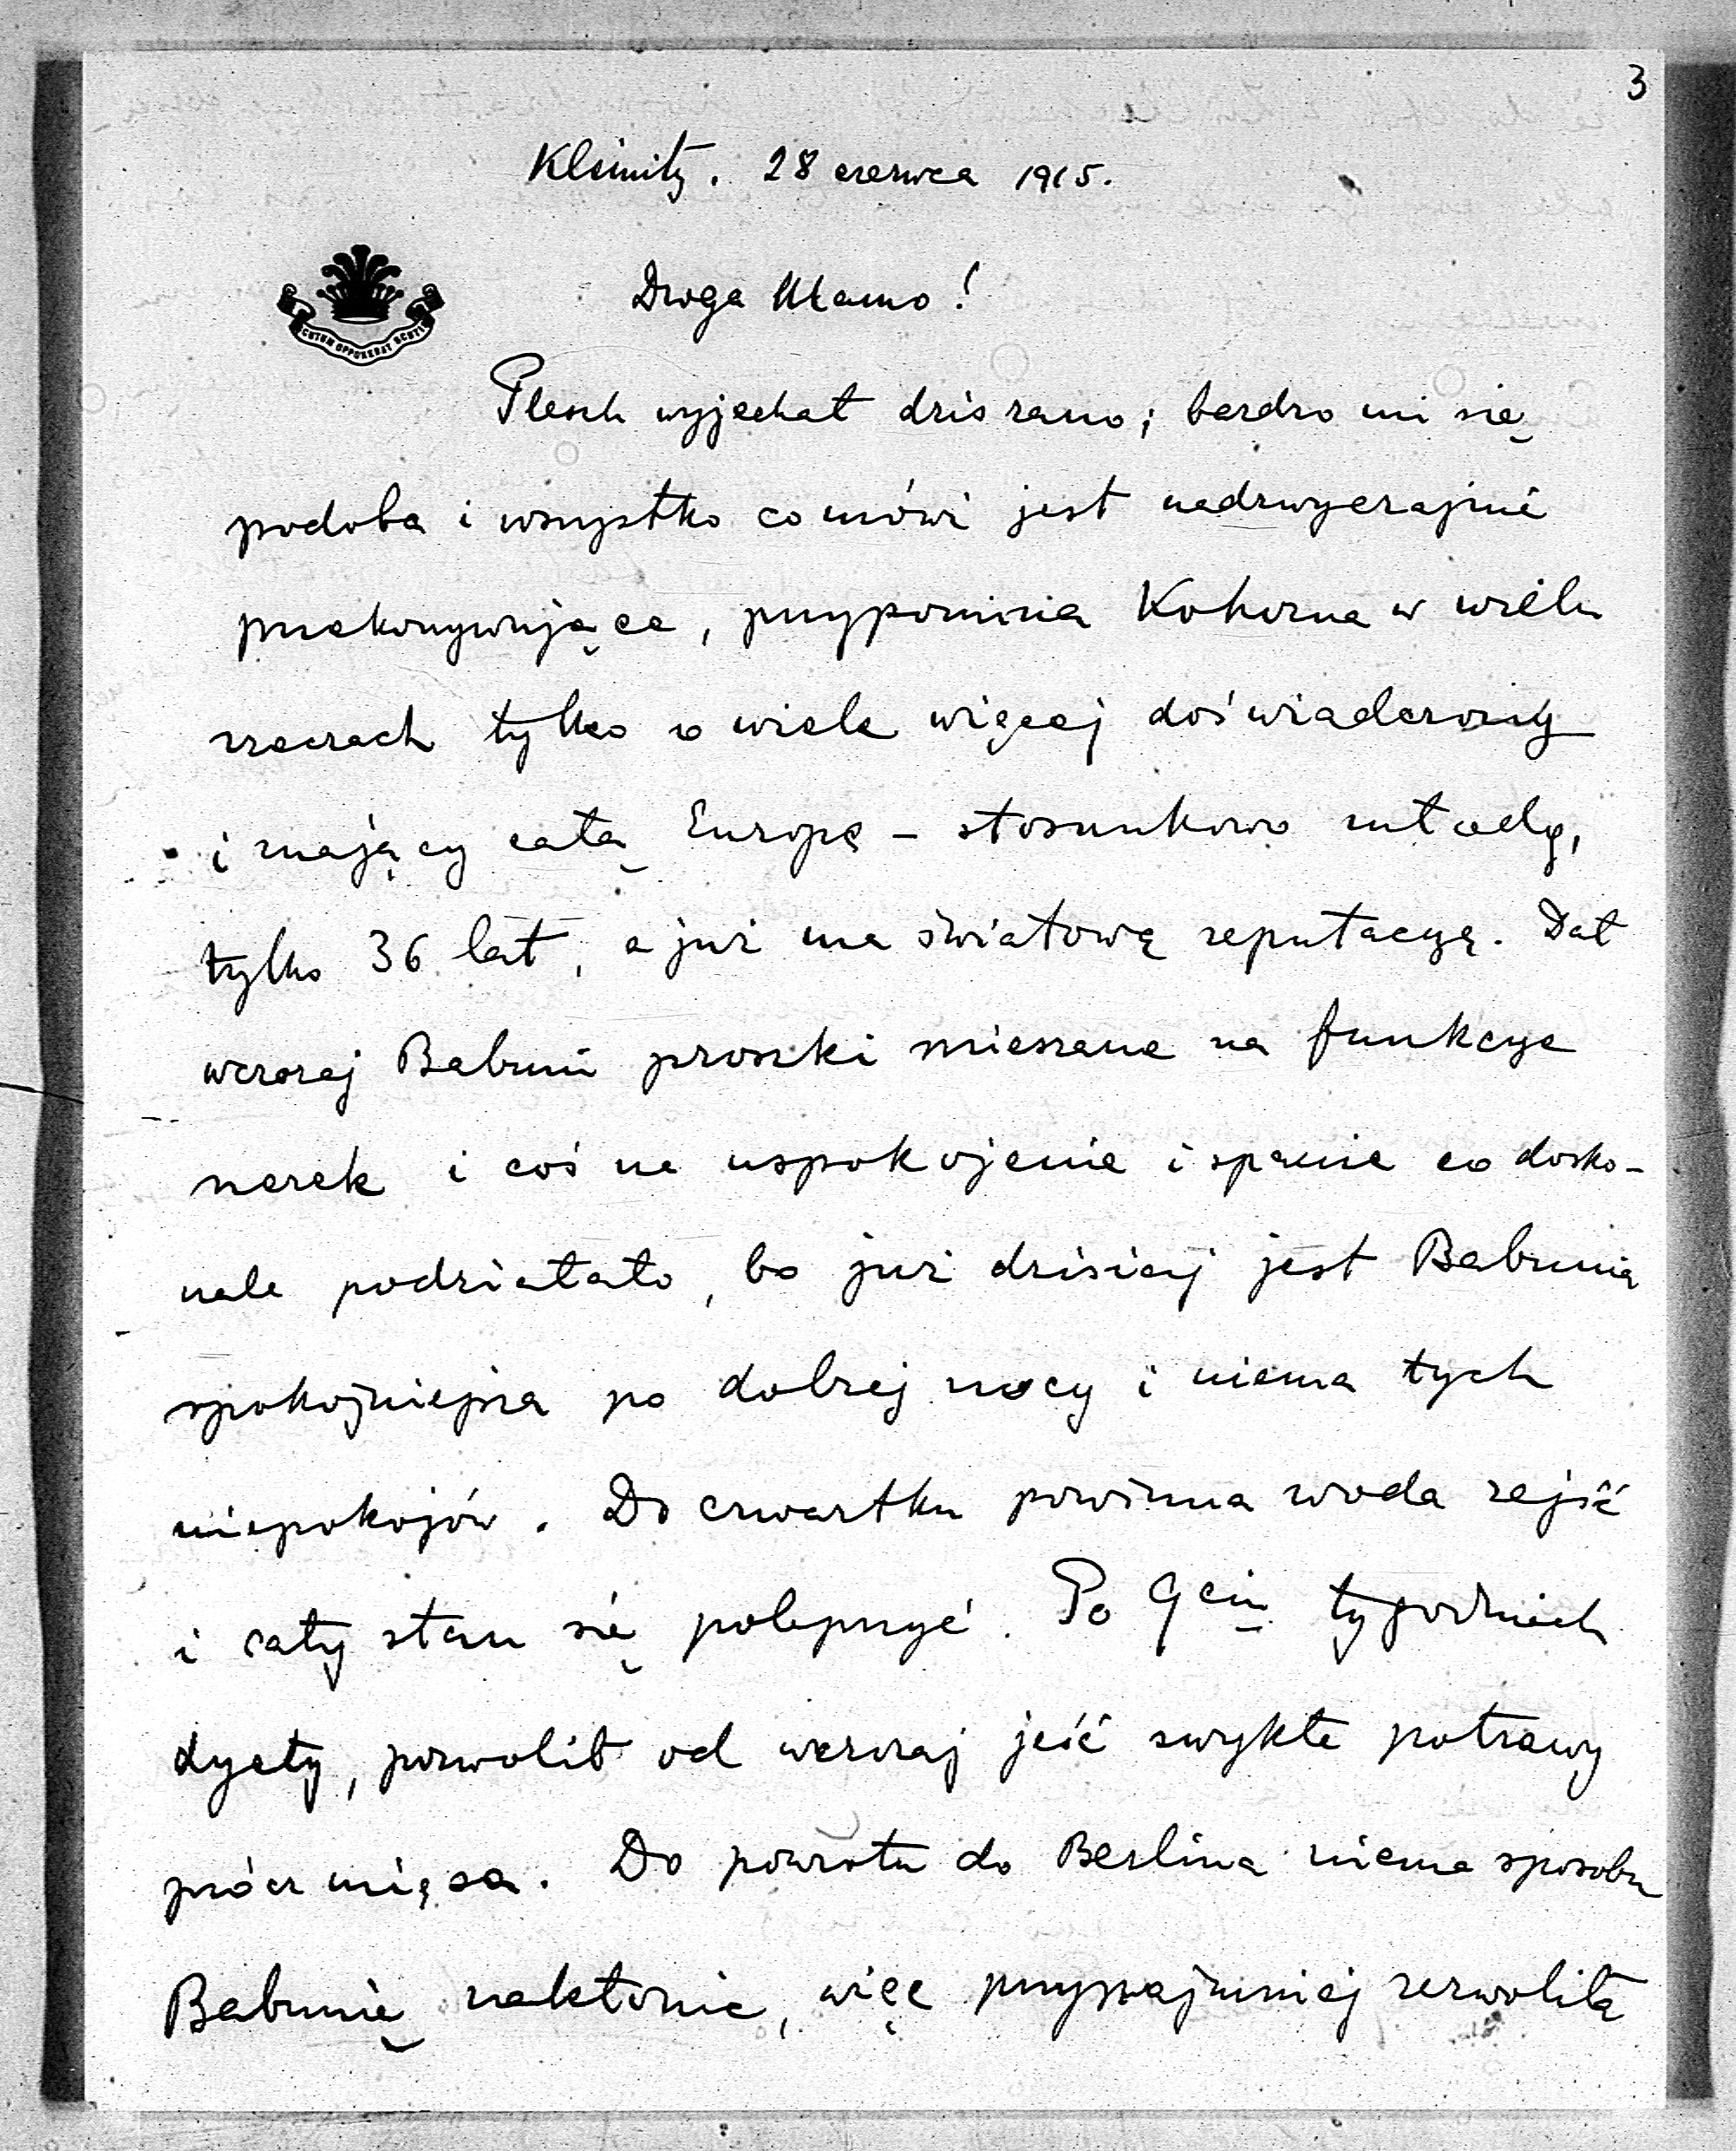 3
Kleinitz. 28 czerwca 1915.
Droga Mamo!
Plesch wyjechał dziś rano; bardzo mi się
podoba i wszystko co mówi jest nadzwyczajnie
przekonywujące, przypomina Kohorna w wielu
rzeczach tylko o wiele więcej doświadczony
i znający całą Europę – stosunkowo młody,
tylko 36 lat, a już ma światową reputacyę. Dał
wczoraj Babuni proszki mieszane na funkcye
nerek i coś na uspokojenie i spanie co dosko-
nale podziałało, bo już dzisiaj jest Babunia
spokojniejsza po dobrej nocy i niema tych
niepokojów. Do czwartku powinna woda zejść
i cały stan się polepszyć. Po 9ciu tygodniach
dyety, pozwolił od wczoraj jeść zwykłe potrawy
prócz mięsa. Do powrotu do Berlina niema sposobu
Babunię nakłonić, więc przynajmniej zezwoliła